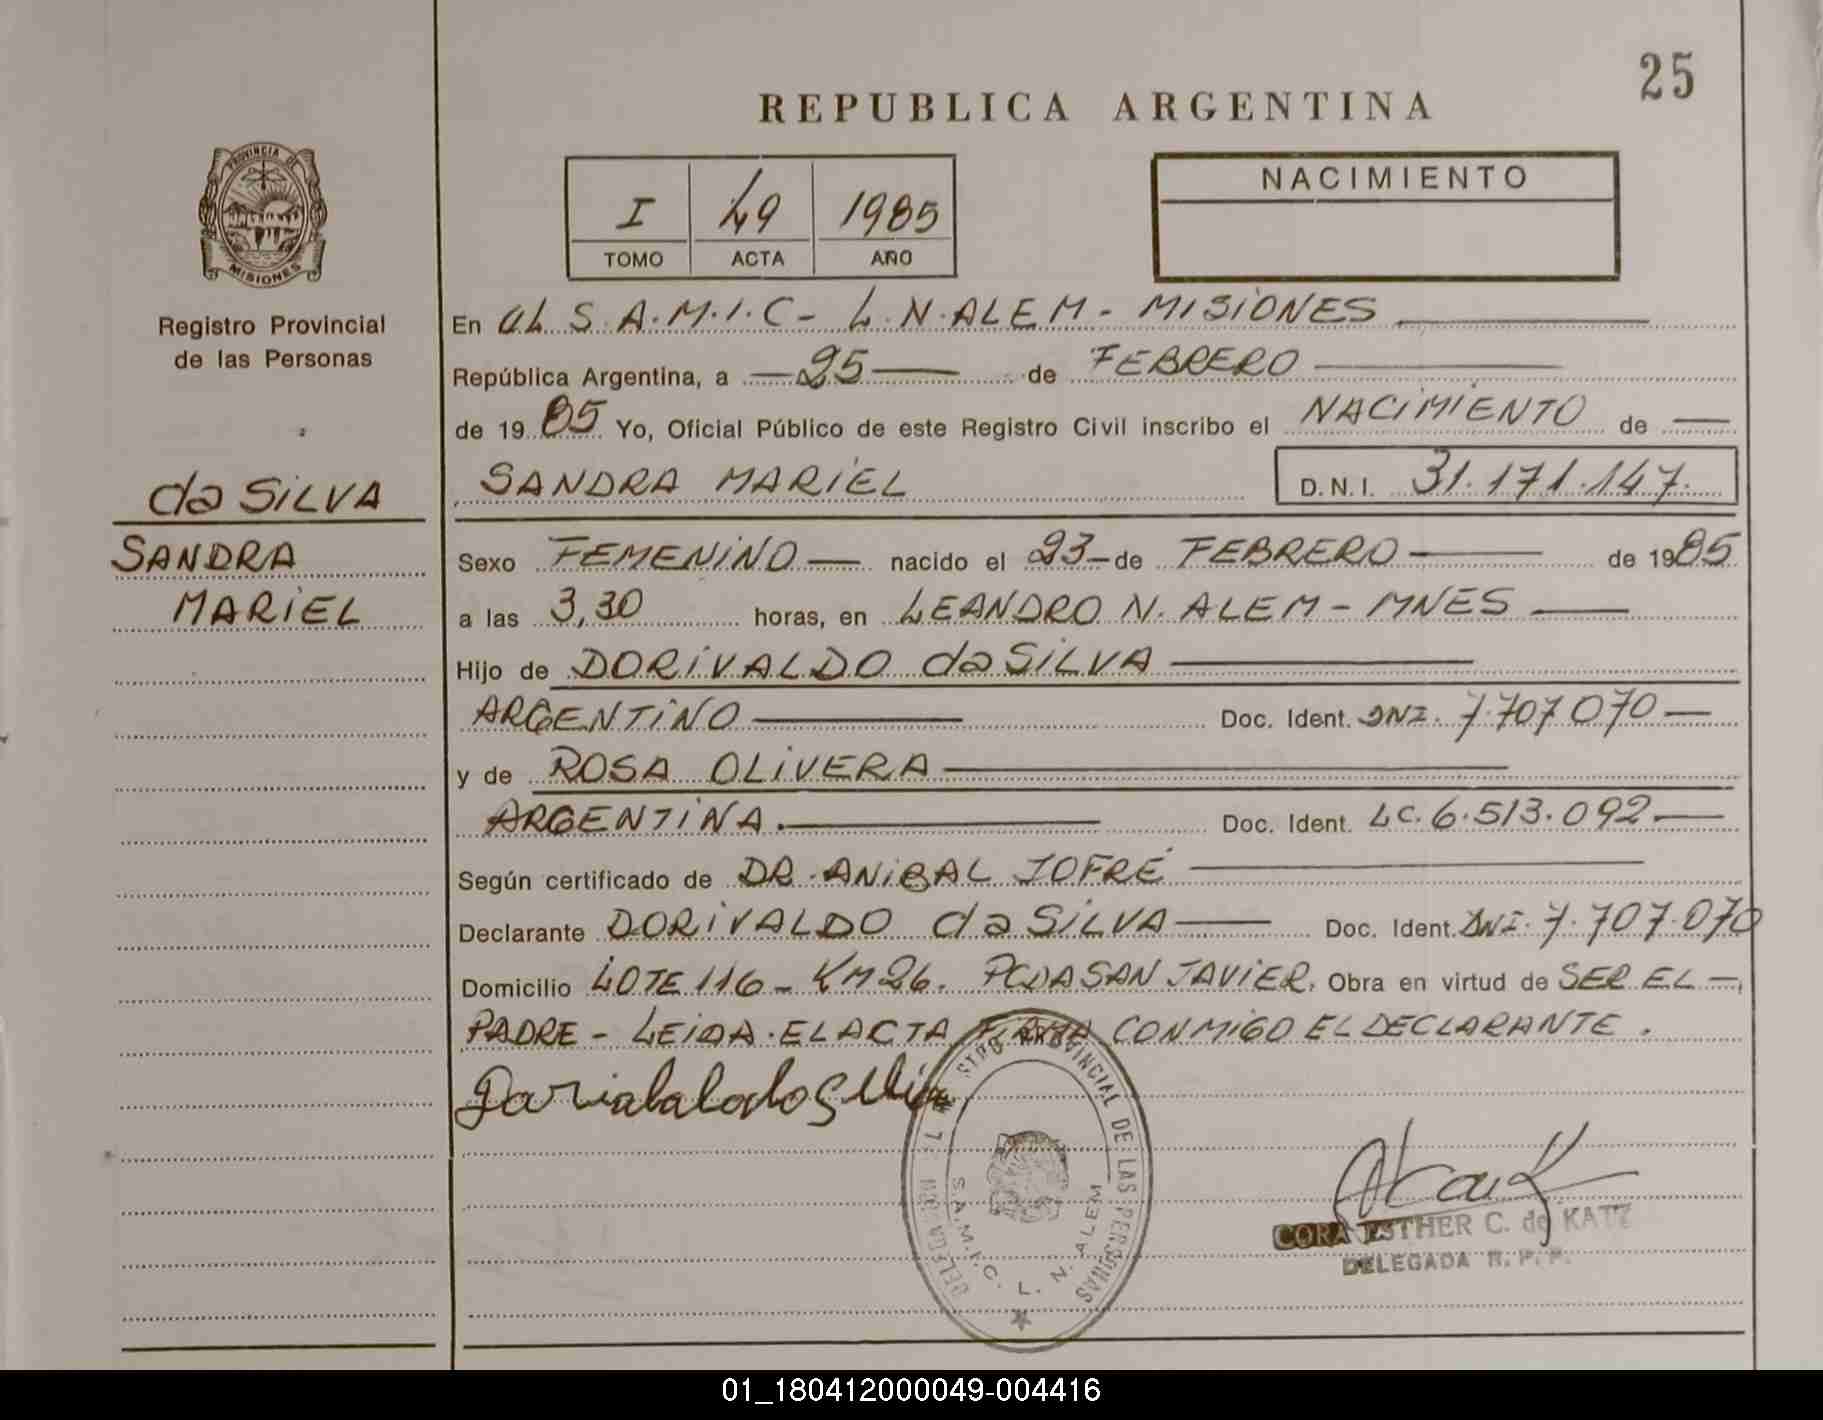 25
REPUBLICA ARGENTINA
PROVINCIA DE
MISIONES
I 49 1985
TOMO ACTA AÑO
NACIMIENTO
Registro Provincial
de las Personas
da SILVA
SANDRA
MARIEL
En S.A.M.I.C - L.N.ALEM - MISIONES
República Argentina, a 25 de FEBRERO
de 1985 Yo, Oficial Público de este Registro Civil inscribo el NACIMIENTO de
SANDRA MARIEL D.N.I. 31.171.147.
Sexo FEMENINO nacido el 23 de FEBRERO de 1985
a las 3,30 horas, en LEANDRO N. ALEM - MNES
Hijo de DORIVALDO da SILVA
ARGENTINO Doc. Ident. DNI. 7.707.070
y de ROSA OLIVERA
ARGENTINA. Doc. Ident. LC. 6.513.092
Según certificado de DR. ANIBAL JOFRÉ
Declarante DORIVALDO da SILVA Doc. Ident. DNI. 7.707.070
Domicilio LOTE 116 - KM 26. PCDA SAN JAVIER. Obra en virtud de SER EL
PADRE - LEIDA EL ACTA FIRMA CONMIGO EL DECLARANTE.
PROVINCIAL DE LAS PERSONAS
S.A.M.I.C. L. N. ALEM
CORA ESTHER C. de KATZ
DELEGADA R. P. P.
01_180412000049-004416